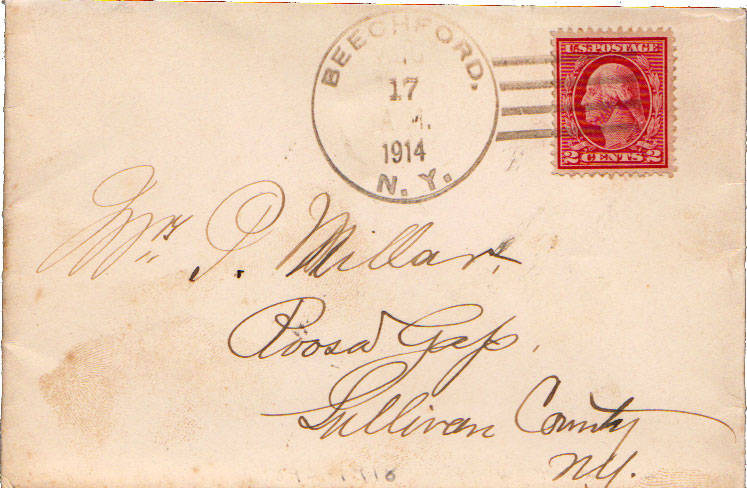 BEECHFORD,
17
A.M.
1914
N. Y.
U.S. POSTAGE
2 CENTS 2
P. Millar,
Roosa Gap,
Sullivan County
N.Y.